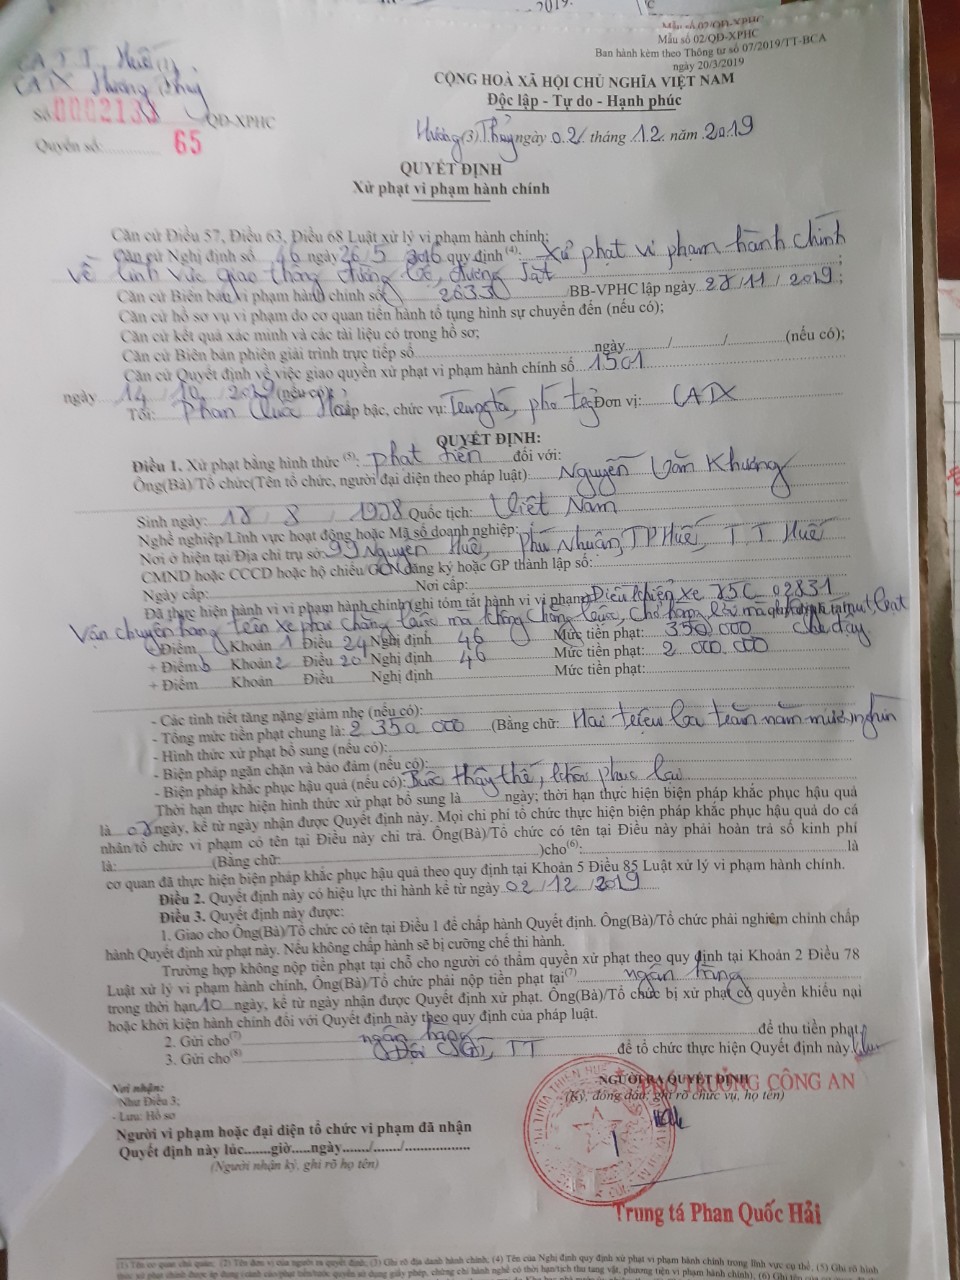 2019.
Mẫu số 02/QĐ-XPHC
Mẫu số 02/QĐ-XPHC
Ban hành kèm theo Thông tư số 07/2019/TT-BCA
ngày 20/3/2019
CA T T. Huế (1)
CATX Hương Thủy
Số 0002133 QĐ-XPHC
Quyển số: 65
CỘNG HOÀ XÃ HỘI CHỦ NGHĨA VIỆT NAM
Độc lập - Tự do - Hạnh phúc
Hương (3) Thủy ngày 02 tháng 12 năm 2019
QUYẾT ĐỊNH
Xử phạt vi phạm hành chính
Căn cứ Điều 57, Điều 63, Điều 68 Luật xử lý vi phạm hành chính;
Căn cứ Nghị định số 46 ngày 26/5/2016 quy định (4): Xử phạt vi phạm hành chính
về lĩnh vực giao thông đường bộ, đường sắt ;
Căn cứ Biên bản vi phạm hành chính số 26330 /BB-VPHC lập ngày 28/11/2019;
Căn cứ hồ sơ vụ vi phạm do cơ quan tiến hành tố tụng hình sự chuyển đến (nếu có);
Căn cứ kết quả xác minh và các tài liệu có trong hồ sơ;
Căn cứ Biên bản phiên giải trình trực tiếp số ngày / / (nếu có);
Căn cứ Quyết định về việc giao quyền xử phạt vi phạm hành chính số 1501
ngày 14/10/2019 (nếu có)
Tôi: Phan Quốc Hải Cấp bậc, chức vụ: Trung tá, phó tr Đơn vị: CATX
QUYẾT ĐỊNH:
Điều 1. Xử phạt bằng hình thức (5): phạt tiền đối với:
Ông(Bà)/Tổ chức(Tên tổ chức, người đại diện theo pháp luật): Nguyễn Văn Khương
Sinh ngày: 18/8/1978 Quốc tịch: Việt Nam
Nghề nghiệp/Lĩnh vực hoạt động hoặc Mã số doanh nghiệp:
Nơi ở hiện tại/Địa chỉ trụ sở: 99 Nguyễn Huệ, Phú Nhuận, TP Huế, T T. Huế
CMND hoặc CCCD hoặc hộ chiếu/GCN đăng ký hoặc GP thành lập số:
Ngày cấp: Nơi cấp:
Đã thực hiện hành vi vi phạm hành chính (ghi tóm tắt hành vi vi phạm) Điều khiển xe 75C 02831
Vận chuyển hàng trên xe phải chằng buộc mà không chằng buộc, Chở hàng rời mà phủ bạt che đậy
+ Điểm Khoản 1 Điều 24 Nghị định 46 Mức tiền phạt: 350 000
+ Điểm b Khoản 2 Điều 20 Nghị định 46 Mức tiền phạt: 2 000.000
+ Điểm Khoản Điều Nghị định Mức tiền phạt:
- Các tình tiết tăng nặng/giảm nhẹ (nếu có):
- Tổng mức tiền phạt chung là: 2 350 000 (Bằng chữ: Hai triệu ba trăm năm mươi nghìn
- Hình thức xử phạt bổ sung (nếu có):
- Biện pháp ngăn chặn và bảo đảm (nếu có):
- Biện pháp khắc phục hậu quả (nếu có): Buộc thay thế, khôi phục lại
Thời hạn thực hiện hình thức xử phạt bổ sung là ngày; thời hạn thực hiện biện pháp khắc phục hậu quả
là ngày, kể từ ngày nhận được Quyết định này. Mọi chi phí tổ chức thực hiện biện pháp khắc phục hậu quả do cá
nhân/tổ chức vi phạm có tên tại Điều này chi trả. Ông(Bà)/Tổ chức có tên tại Điều này phải hoàn trả số kinh phí
là: (Bằng chữ: )cho(6): là
cơ quan đã thực hiện biện pháp khắc phục hậu quả theo quy định tại Khoản 5 Điều 85 Luật xử lý vi phạm hành chính.
Điều 2. Quyết định này có hiệu lực thi hành kể từ ngày 02/12/2019
Điều 3. Quyết định này được:
1. Giao cho Ông(Bà)/Tổ chức có tên tại Điều 1 để chấp hành Quyết định. Ông(Bà)/Tổ chức phải nghiêm chỉnh chấp
hành Quyết định xử phạt này. Nếu không chấp hành sẽ bị cưỡng chế thi hành.
Trường hợp không nộp tiền phạt tại chỗ cho người có thẩm quyền xử phạt theo quy định tại Khoản 2 Điều 78
Luật xử lý vi phạm hành chính, Ông(Bà)/Tổ chức phải nộp tiền phạt tại(7) ngân hàng
trong thời hạn 10 ngày, kể từ ngày nhận được Quyết định xử phạt. Ông(Bà)/Tổ chức bị xử phạt có quyền khiếu nại
hoặc khởi kiện hành chính đối với Quyết định này theo quy định của pháp luật.
2. Gửi cho(7) ngân hàng để thu tiền phạt.
3. Gửi cho(8) Đội GT, TT để tổ chức thực hiện Quyết định này.
Nơi nhận:
- Như Điều 3;
- Lưu: Hồ sơ
Người vi phạm hoặc đại diện tổ chức vi phạm đã nhận
Quyết định này lúc.......giờ.....ngày......./......./..................
(Người nhận ký, ghi rõ họ tên)
NGƯỜI RA QUYẾT ĐỊNH
(Ký, đóng dấu; ghi rõ chức vụ, họ tên)
PHÓ TRƯỞNG CÔNG AN
Trung tá Phan Quốc Hải
(1) Tên cơ quan chủ quản; (2) Tên đơn vị của người ra quyết định; (3) Ghi rõ địa danh hành chính; (4) Tên của Nghị định quy định xử phạt vi phạm hành chính trong lĩnh vực cụ thể. (5) Ghi rõ hình